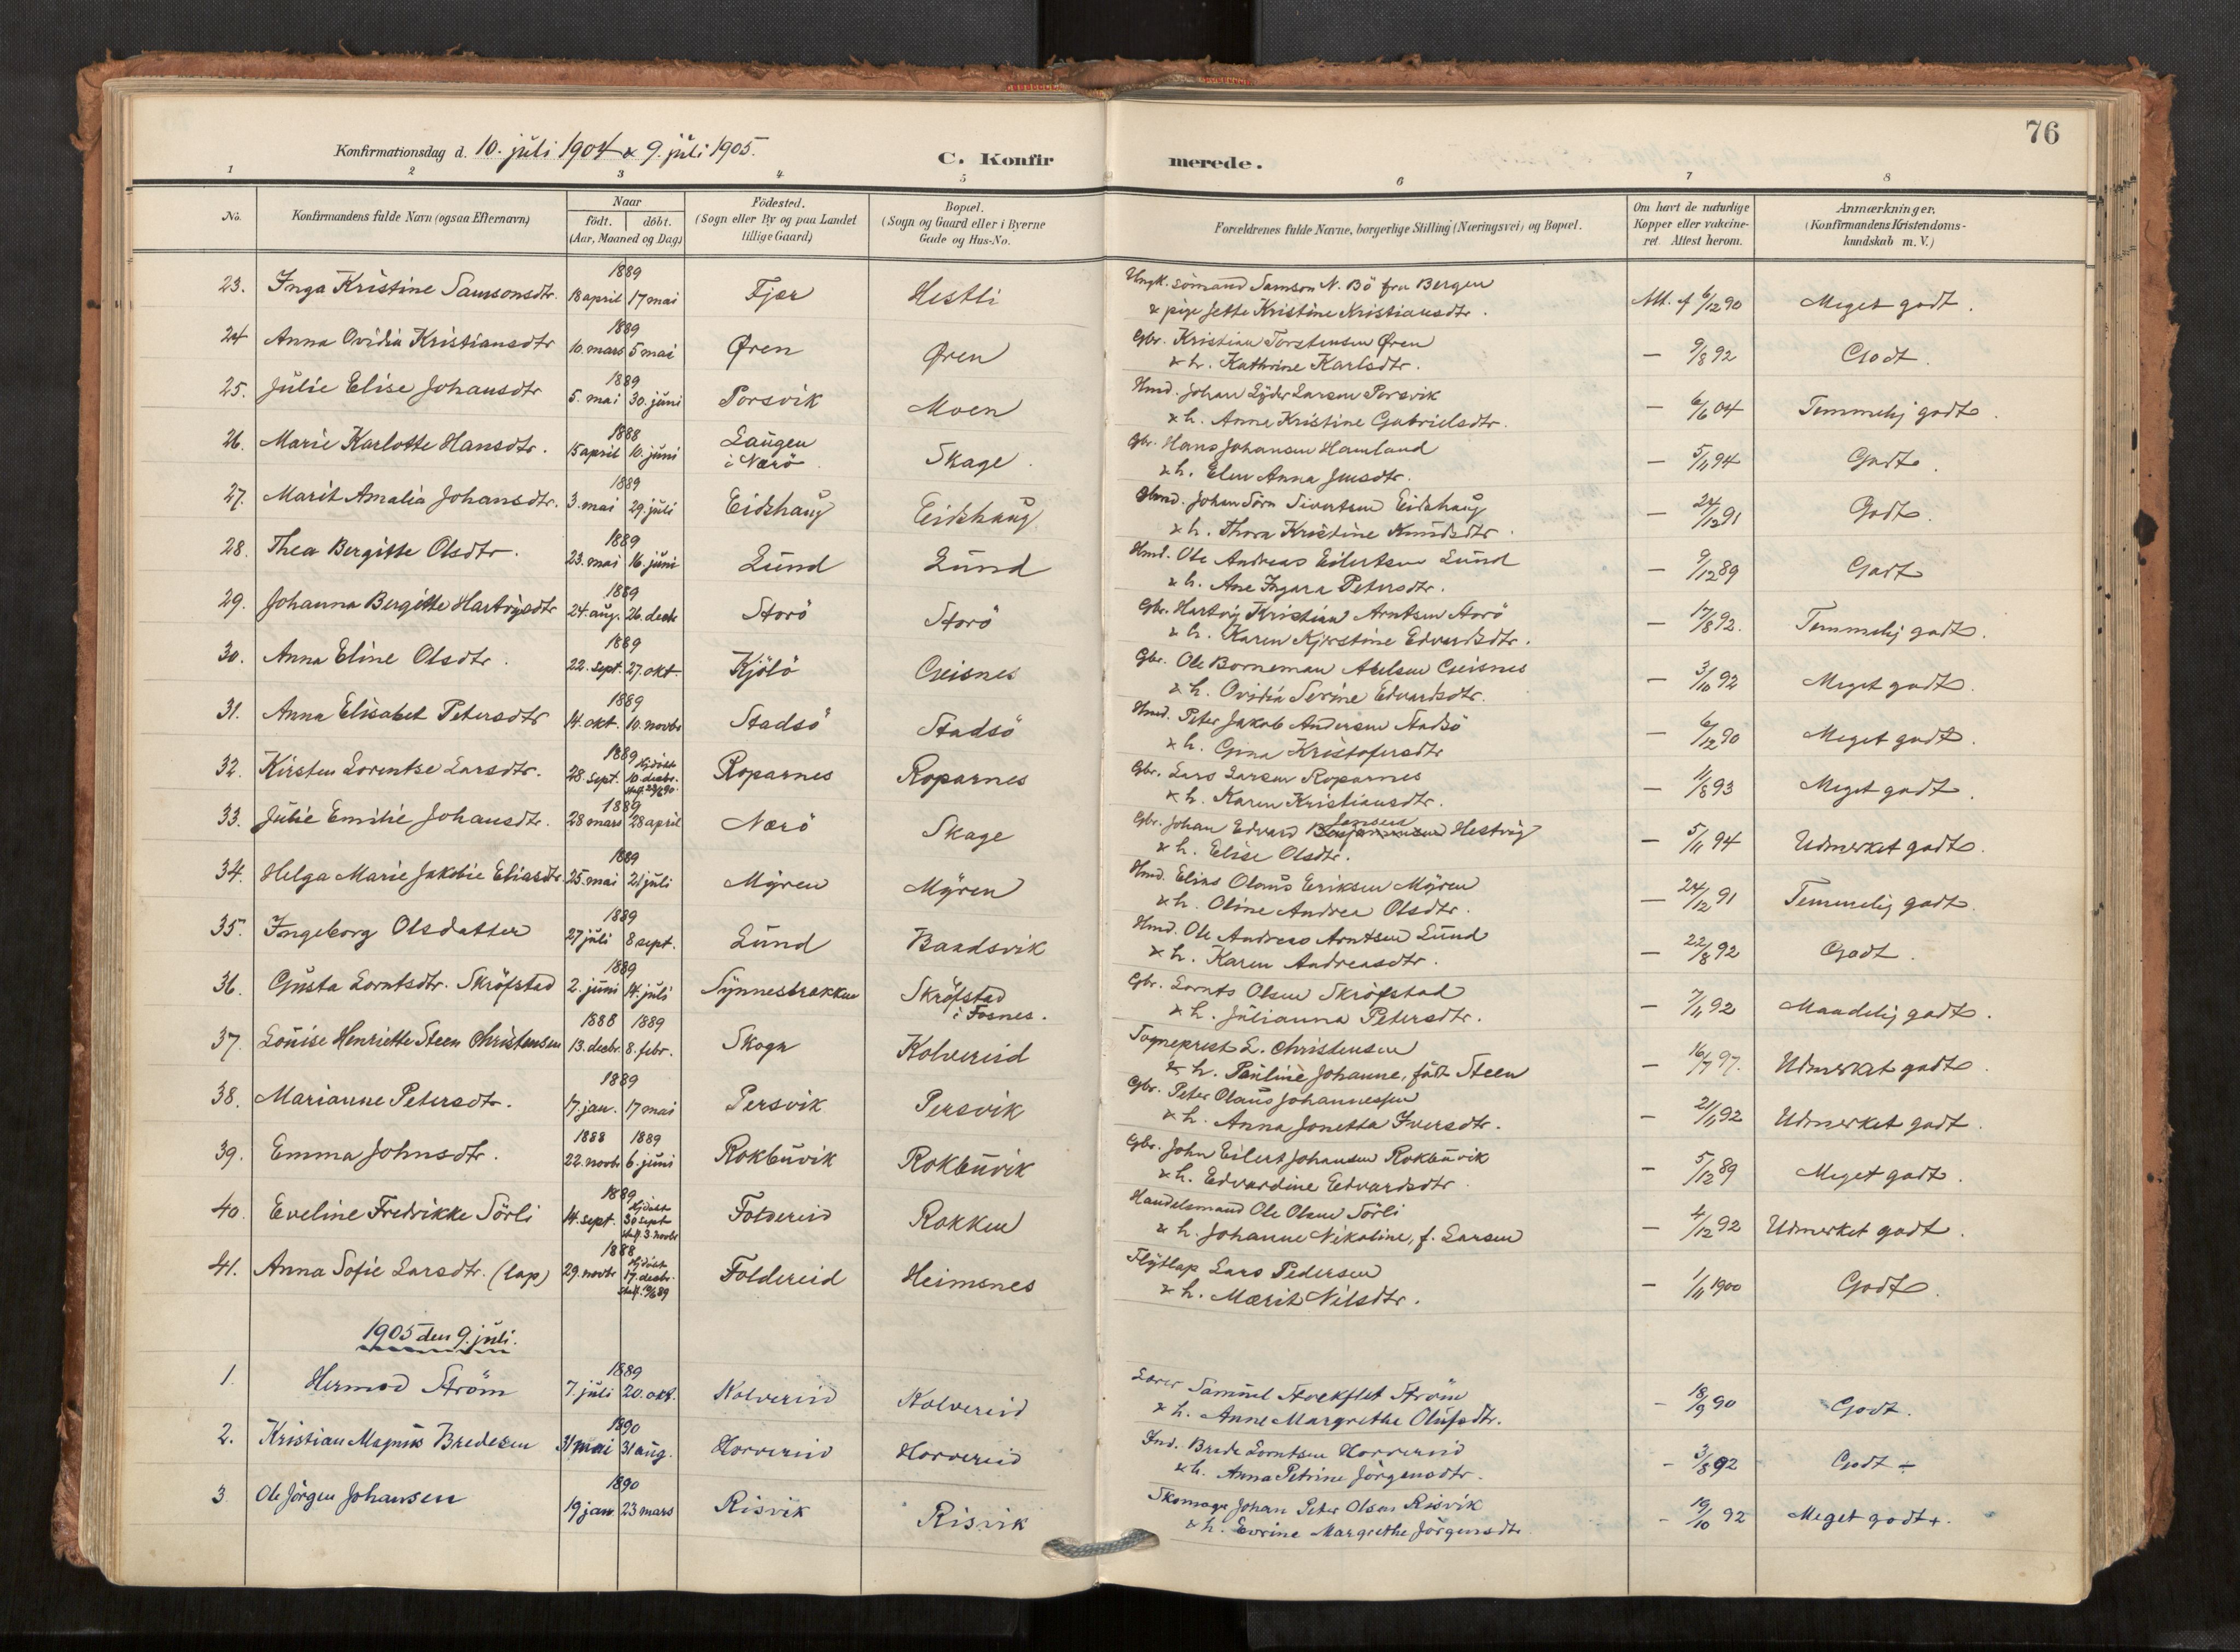 76
Konfirmationsdag d. 10. juli 1904 & 9. juli 1905.
C. Konfirmerede.
1 2 3 4 5 6 7 8
No. Konfirmandens fulde Navn (ogsaa Efternavn) Naar født. døbt. (Aar, Maaned og Dag) Födested. (Sogn eller By og paa Landet tillige Gaard) Bopæl. (Sogn og Gaard eller i Byerne Gade og Hus-No. Forældrenes fulde Navne, borgerlige Stilling (Næringsvei) og Bopæl. Om havt de naturlige Kopper eller vakcineret. Attest herom. Anmærkninger. (Konfirmandens Kristendomskundskab m. V.)
23. Inga Kristine Samsonsdtr. 1889 18 april 17 mai Fjær Hestli Ungk. sömand Samson N. Bö fra Bergen
& pige Jette Kristine Kristiansdtr. Att. af 6/12 90 Meget godt.
24 Anna Ovidia Kristiansdtr 1889 10. mars 5 mai Øren Øren Gbr. Kristian Torstensen Øren
& h. Kathrine Karlsdtr. — 9/8 92 Godt.
25. Julie Elise Johansdtr 1889 5. mai 30. juni Porsvik Moen Hmd. Johan Lyder Larsen Porsvik
& h. Anne Kristine Gabrielsdtr. — 6/6 04 Temmelig godt.
26. Marie Karlotte Hansdtr. 1888 15 april 10. juni Laugen i Nærö. Skage. Gbr. Hans Johansen Hamland
& h. Elen Anna Jensdtr. — 5/11 94 Godt.
27. Marit Amalia Johansdtr. 1889 3. mai 29. juli Eidshaug Eidshaug Hmd. Johan Sörn Sivertsen Eidshaug
& h. Thora Kristine Knudsdtr. — 24/12 91 Godt.
28. Thea Bergitte Olsdtr. 1889 23. mai 16. juni Lund Lund Hmd. Ole Andreas Eilertsen Lund
& h. Ane Ingara Petersdtr. — 9/12 89 Godt
29. Johanna Bergitte Hartvigsdtr 1889 24. aug. 26. decbr Storö Storö Gbr. Hartvig Kristian Arntsen Storö
& h. Karen Kjerstine Edvardsdtr. — 17/8 92. Temmelig godt.
30. Anna Eline Olsdtr. 1889 22. sept. 27. okt. Kjölö Geisnes Gbr. Ole Borneman Axelsen Geisnes
& h. Ovidia Serine Edvardsdtr. — 3/10 92 Meget godt.
31. Anna Elisabet Petersdtr 1889 14. okt. 10. novbr Stadsö Stadsö Hmd. Peter Jakob Andersen Stadsö
& h. Gina Kristofersdtr — 6/12 90 Meget godt.
32. Kirsten Lorentse Larsdtr. 1889 28 sept. Hjdöbt 10 decbr. Roparnes Roparnes Gbr. Lars Larsen Roparnes
& h. Karen Kristiansdtr. — 11/8 93 Meget godt.
33. Julie Emilie Johansdtr. 1889 28 mars 28 april Nærö Skage Gbr. Johan Edvard Jensen Hestvig
& h. Elise Olsdtr. — 5/11 94 Udmerket godt.
34. Helga Marie Jakobie Eliasdtr. 1889 25. mai 21 juli Myren Myren Hmd. Elias Olaus Eriksen Myren
& h. Oline Andrea Olsdtr. — 24/12 91 Temmelig godt.
35. Ingeborg Olsdatter 1889 27 juli 8 sept. Lund Baadsvik Hmd. Ole Andreas Arntsen Lund
& h. Karen Andreasdtr. — 22/8 92 Godt.
36. Gusta Lorntsdtr. Skröfstad 1889 2. juni 14. juli Synnestrakken Skröfstad i Fosnes. Gbr. Lornts Olsen Skröfstad
& h. Julianna Petersdtr. — 7/11 92 Maadelig godt.
37. Louise Henriette Steen Christensen 1888 13. decbr. 1889 8. febr. Skogn Kolvereid Sogneprest L. Christensen
& h. Pauline Johanne, född Steen — 16/7 97. Udmerket godt.
38. Marianne Petersdtr. 1889 17. jan. 17 mai Persvik Persvik Gbr. Peter Olaus Johannessen
& h. Anna Jonetta Iversdtr. — 21/11 92 Udmerket godt.
39. Emma Johnsdtr. 1888 22. novbr 1889 6. juni Rokbuvik Rokbuvik Gbr. John Eilert Johansen Rokbuvik
& h. Edvardine Edvardsdtr — 5/12 89 Meget godt.
40. Eveline Fredrikke Sörli 1889 14. sept. Hjdöbt 30 sept. stadf. 3. novbr Foldereid Rokken Handelsmand Ole Olsen Sörli
& h. Johanne Nikoline, f. Larsen — 4/12 92 Udmerket godt.
41. Anna Sofie Larsdtr. (lap) 1888 29. novbr Hjdöbt 17. decbr. Foldereid Heimsnes Flytlap Lars Pedersen
& h. Marit Nilsdtr. — 1/11 1900 Godt.
1905 den 9. juli.
1. Hermod Ström 1889 7. juli 20. okt. Kolvereid Kolvereid Lærer Samuel Stockflet Ström
& h. Anne Margrethe Olufsdtr. — 18/9 90 Godt.
2. Kristian Magnus Bredesen 1890 31 mai 31 aug. Horvereid Horvereid Ind. Brede Lorntsen Horvereid
& h. Anna Petrine Jörgensdtr. — 3/8 92 Godt ÷
3 Ole Jörgen Johansen 1890 19 jan. 23 mars Risvik Risvik Skomager Johan Peter Olsen Risvik
& h. Evrine Margrethe Jörgensdtr — 19/10 92 Meget godt +.